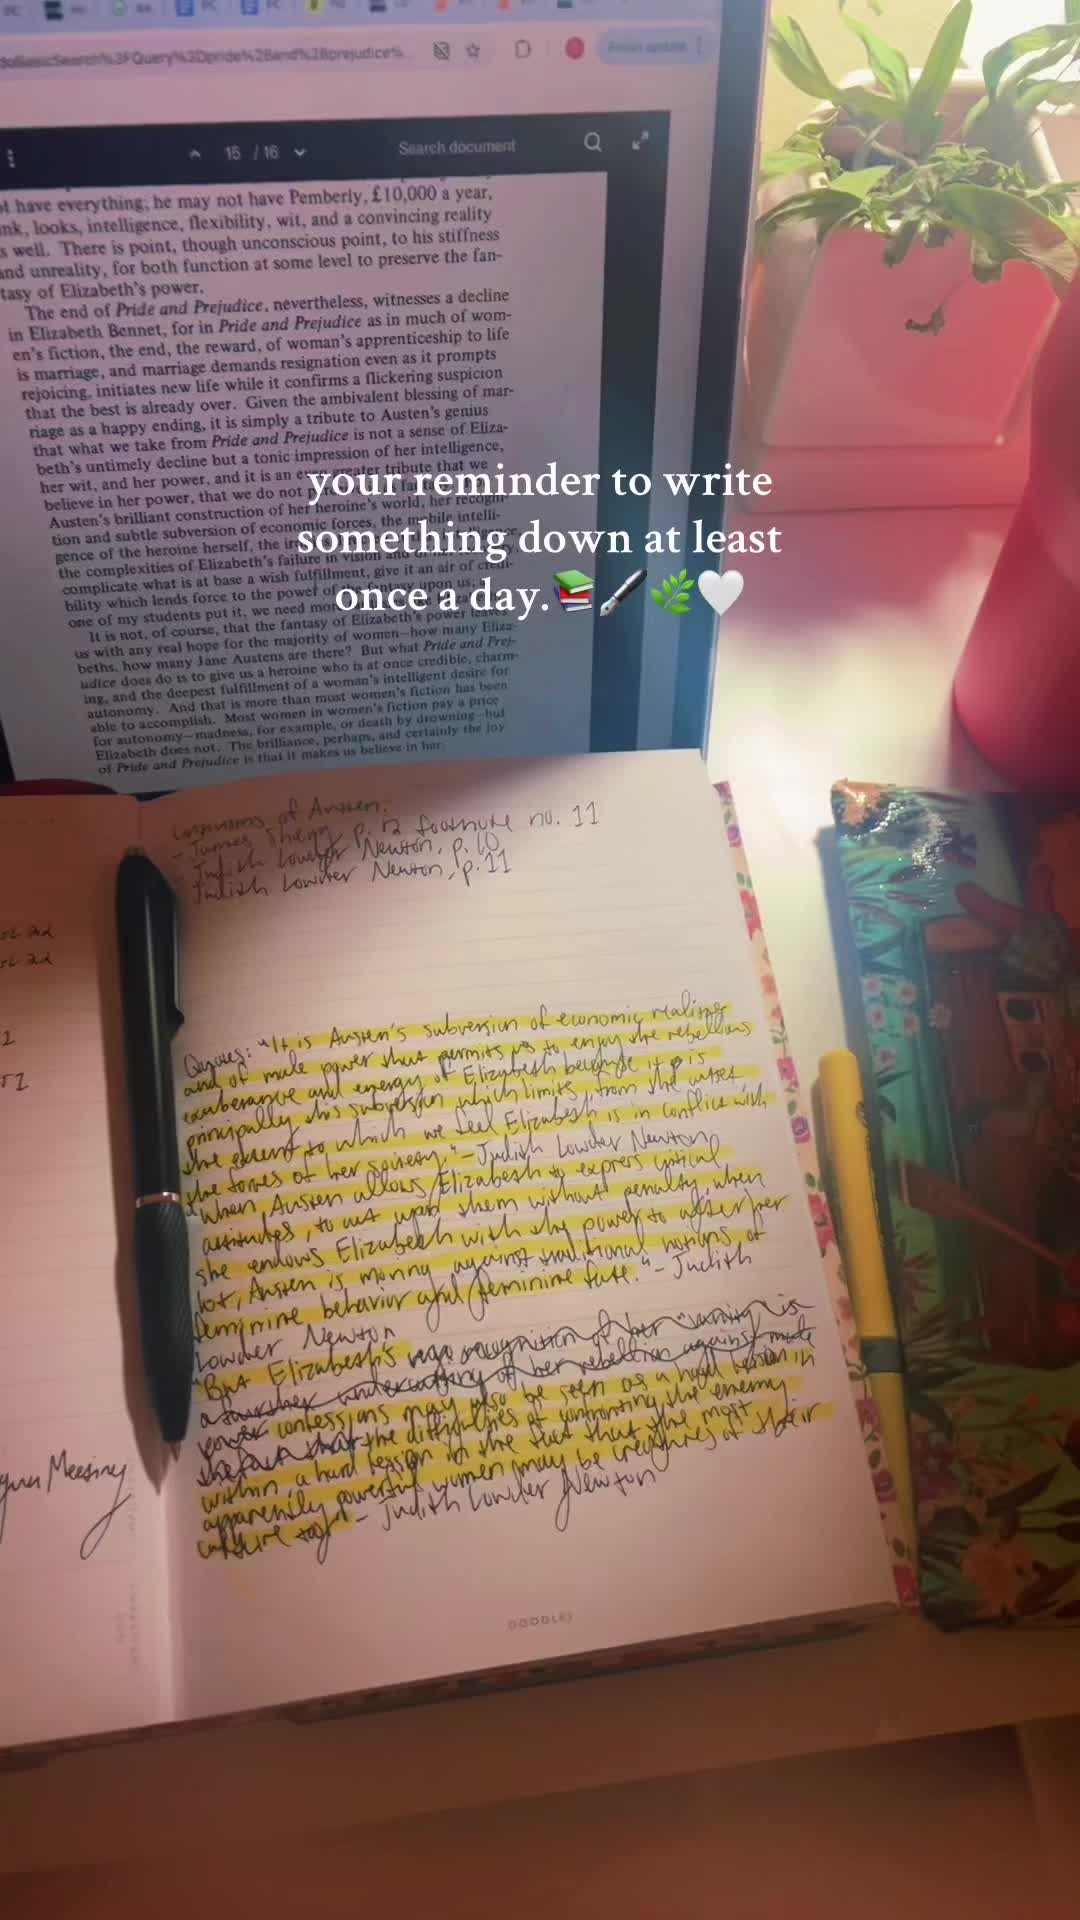 doBasicSearch%3FQuery%3Dpride%2Band%2Bprejudice%
Finish update
15 / 16
Search document
have everything; he may not have Pemberly, £10,000 a year,
looks, intelligence, flexibility, wit, and a convincing reality
well. There is point, though unconscious point, to his stiffness
and unreality, for both function at some level to preserve the fan-
tasy of Elizabeth's power.
The end of Pride and Prejudice, nevertheless, witnesses a decline
in Elizabeth Bennet, for in Pride and Prejudice as in much of wom-
en's fiction, the end, the reward, of woman's apprenticeship to life
is marriage, and marriage demands resignation even as it prompts
rejoicing, initiates new life while it confirms a flickering suspicion
that the best is already over. Given the ambivalent blessing of mar-
riage as a happy ending, it is simply a tribute to Austen's genius
that what we take from Pride and Prejudice is not a sense of Eliza-
beth's untimely decline but a tonic impression of her intelligence,
her wit, and her power, and it is an even greater tribute that we
believe in her power, that we do not
Austen's brilliant construction of her heroine's world, her recogni-
tion and subtle subversion of economic forces, the mobile intelli-
gence of the heroine herself, the
the complexities of Elizabeth's failure in vision and
complicate what is at base a wish fulfillment, give it an air of credi-
bility which lends force to the power of the fantasy upon us;
one of my students put it, we need more
It is not, of course, that the fantasy of Elizabeth's power leaves
us with any real hope for the majority of women—how many Eliza-
beths, how many Jane Austens are there? But what Pride and Prej-
udice does do is to give us a heroine who is at once credible, charm-
ing, and the deepest fulfillment of a woman's intelligent desire for
autonomy. And that is more than most women's fiction has been
able to accomplish. Most women in women's fiction pay a price
for autonomy—madness, for example, or death by drowning—but
Elizabeth does not. The brilliance, perhaps, and certainly the joy
of Pride and Prejudice is that it makes us believe in her.
your reminder to write
something down at least
once a day.📚🖋️🌿🤍
of Austen:
- James p. 12 footnote no. 11
- Judith Lowder Newton, p. 10
Judith Lowder Newton, p. 11
Quotes: "It is Austen's subversion of economic realities
and of male power that permits us to enjoy the rebellious
exuberance and energy of Elizabeth because it is
principally this subversion which limits, from the outset,
the extent to which we feel Elizabeth is in conflict with
the forces of her society." - Judith Lowder Newton
"When Austen allows Elizabeth to express critical
attitudes, to act upon them without penalty, when
she endows Elizabeth with the power to alter her
lot, Austen is moving against traditional notions of
feminine behavior and feminine fate." - Judith
Lowder Newton
"But Elizabeth's recognition of her "vanity" is
a further undercutting of her rebellion against male
power confessions may also be seen as a hard lesson in
the difficulties of confronting the enemy
within, a hard lesson in the fact that the most
apparently powerful women may be creatures of their
culture too." - Judith Lowder Newton
DOODLES